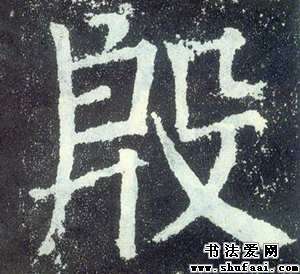 殷
书法爱网
www.shufaai.com